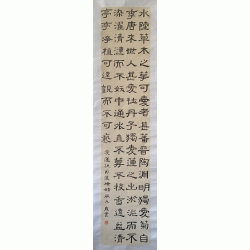 水陸草木之華可愛者甚蕃晉陶淵明獨愛菊自
李唐来世人甚愛牡丹予獨愛蓮之出淤泥而不
染濯清漣而不妖中通外直不蔓不枝香遠益清
亭亭淨植可遠觀而不可